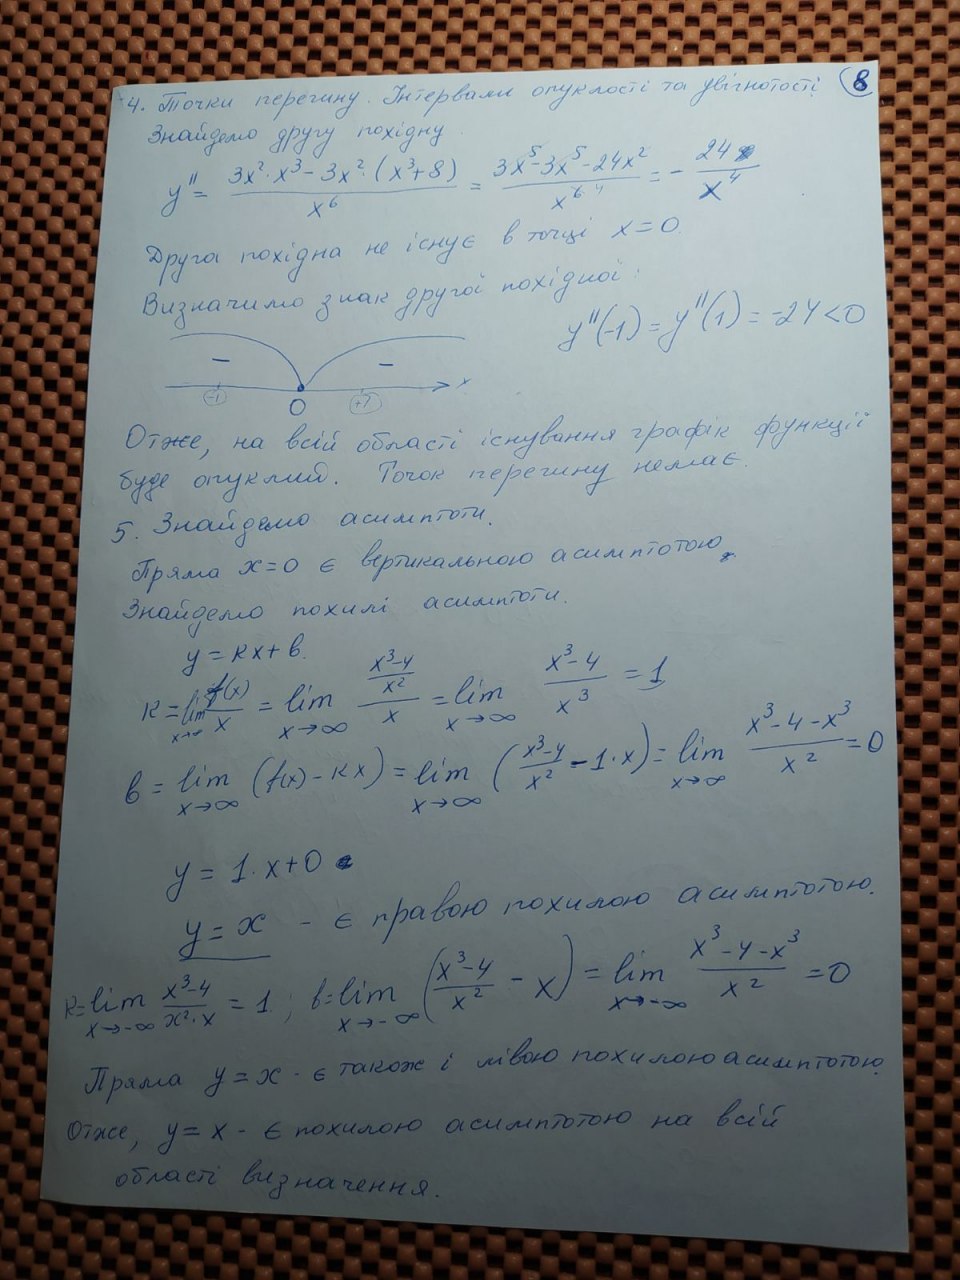 8
4. Точки перегину. Інтервали опуклості та увігнутості
Знайдемо другу похідну
y'' = (3x²·x³ - 3x²·(x³+8))/x⁶ = (3x⁵-3x⁵-24x²)/x⁶ ⁴ = - 24/x⁴
Друга похідна не існує в точці x=0
Визначимо знак другої похідної:
y''(-1) = y''(1) = -24<0
- -
-1 0 +1 x
Отже, на всій області існування графік функції
буде опуклий. Точок перегину немає.
5. Знайдемо асимптоти.
Пряма x=0 є вертикальною асимптотою,
Знайдемо похилі асимптоти.
y = kx+b.
k = lim x→∞ f(x)/x = lim x→∞ ((x³-4)/x²)/x = lim x→∞ (x³-4)/x³ = 1
b = lim x→∞ (f(x) - kx) = lim x→∞ ((x³-4)/x² - 1·x) = lim x→∞ (x³-4-x³)/x² = 0
y = 1·x+0
y = x - є правою похилою асимптотою.
k= lim x→-∞ (x³-4)/(x²·x) = 1 ; b= lim x→-∞ ((x³-4)/x² - x) = lim x→-∞ (x³-4-x³)/x² = 0
Пряма y = x - є також і лівою похилою асимптотою
Отже, y = x - є похилою асимптотою на всій
області визначення.